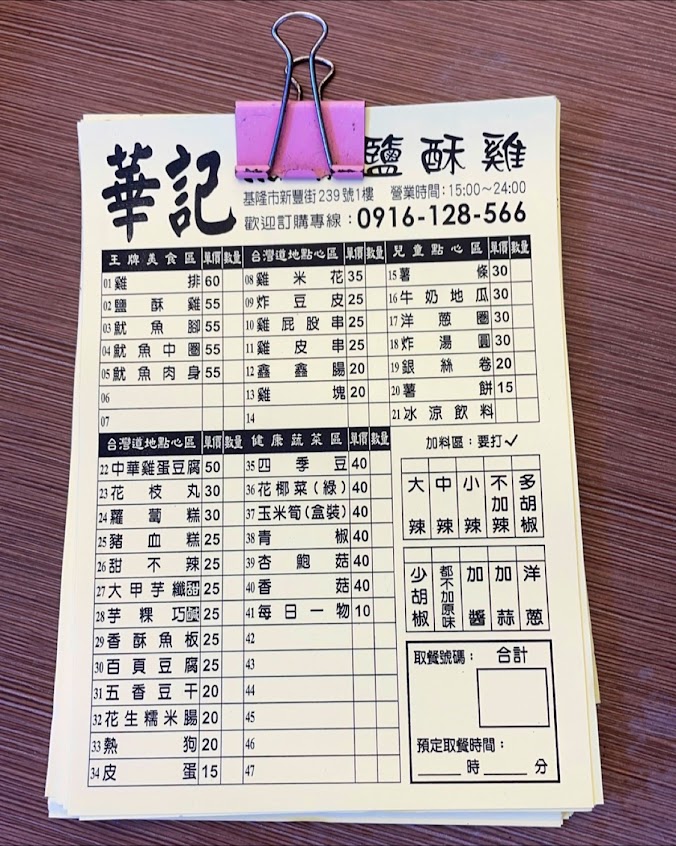 華記 鹽酥雞
基隆市新豐街239號1樓 營業時間:15:00~24:00
歡迎訂購專線:0916-128-566
王牌美食區 單價 數量
01 雞排 60
02 鹽酥雞 55
03 魷魚腳 55
04 魷魚中圈 55
05 魷魚肉身 55
06
07
台灣道地點心區 單價 數量
08 雞米花 35
09 炸豆皮 25
10 雞屁股串 25
11 雞皮串 25
12 鑫鑫腸 20
13 雞塊 20
14
兒童點心區 單價 數量
15 薯條 30
16 牛奶地瓜 30
17 洋蔥圈 30
18 炸湯圓 30
19 銀絲卷 20
20 薯餅 15
21 冰涼飲料
台灣道地點心區 單價 數量
22 中華雞蛋豆腐 50
23 花枝丸 30
24 蘿蔔糕 30
25 豬血糕 25
26 甜不辣 25
27 大甲芋纖甜 25
28 芋粿巧鹹 25
29 香酥魚板 25
30 百頁豆腐 25
31 五香豆干 20
32 花生糯米腸 20
33 熱狗 20
34 皮蛋 15
健康蔬菜區 單價 數量
35 四季豆 40
36 花椰菜(綠) 40
37 玉米筍(盒裝) 40
38 青椒 40
39 杏鮑菇 40
40 香菇 40
41 每日一物 10
42
43
44
45
46
47
加料區:要打✓
大辣 中辣 小辣 不加辣 多胡椒
少胡椒 都不加原味 加醬 加蒜 洋蔥
取餐號碼: 合計
預定取餐時間:
時 分